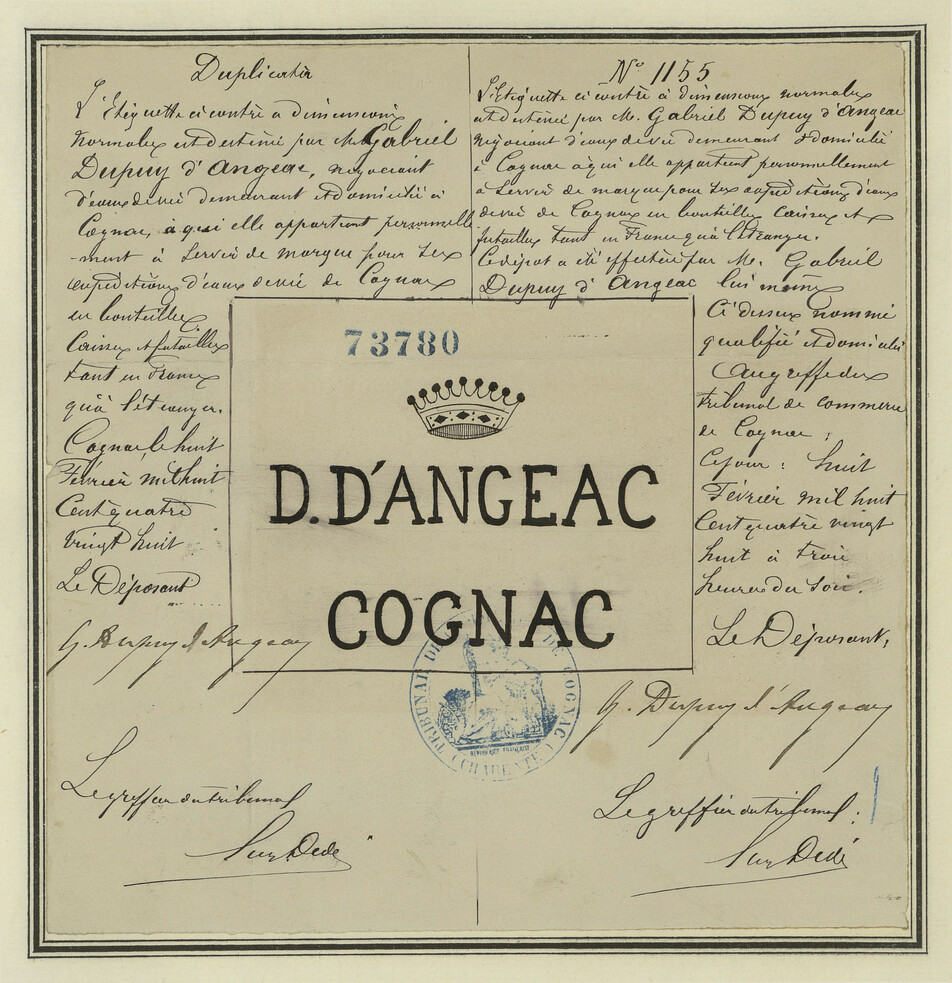 Duplicata
L'Etiquette ci contre a dimensions
normales est destiné par M. Gabriel
Dupuy d'Angeac, negociant
d'eaux de vie demeurant et domicilié à
Cognac, à qui elle appartient personnelle
-ment à servir de marque pour ses
expéditions d'eaux de vie de Cognac
en bouteilles
Caisses et futailles
tant en France
qu'à l'étranger.
Cognac le huit
Février mil huit
Cent quatre
vingt huit
Le Déposant
G. Dupuy d'Angeac
Le greffier du tribunal
N° 1155
L'Etiquette ci contre à dimensions normales
est destiné par M. Gabriel Dupuy d'Angeac
négociant d'eaux de vie demeurant et domicilié
à Cognac à qui elle appartient personnellement
à servir de marque pour ses expéditions d'eaux
de vie de Cognac en bouteilles caisses et
futailles tant en France qu'à l'Etranger.
Ce dépot a été effectué par M. Gabriel
Dupuy d'Angeac lui même
Ci dessus nommé
qualifié et domicilié
Au greffe du
tribunal de commerce
de Cognac,
Ce jour : huit
Février mil huit
Cent quatre vingt
huit à trois
heures du soir.
Le Déposant,
G. Dupuy d'Angeac
Le greffier du tribunal.
73780
D. D'ANGEAC
COGNAC
TRIBUNAL DE COGNAC
REPUBLIQUE FRANÇAISE
(CHARENTE)